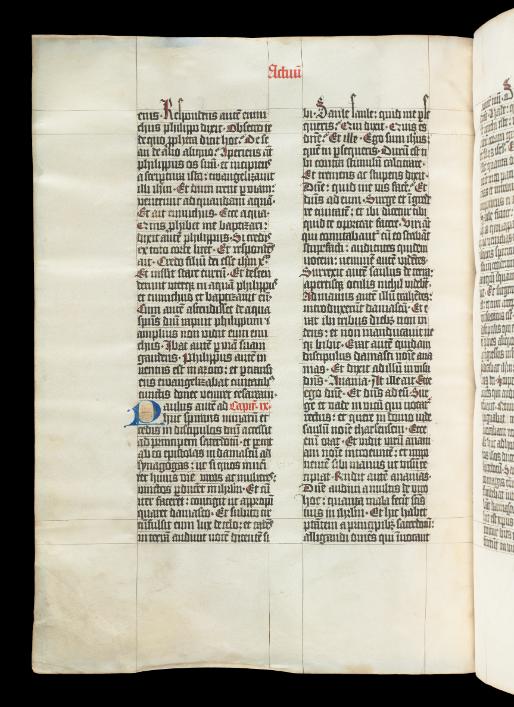 Actuū
ens. Respondens autē eunu
chus philippo dixit. Obsecro te
de quo ꝓpheta dicit hoc. De se
an de alio aliquo. Aperiens aūt
philippus os suū. et incipiens
a scriptura ista: ewangelizauit
illi ihm̄. Et dum irent ꝑ uiam:
venerunt ad quandam aquā.
Et ait eunuchus. Ecce aqua.
Quis ꝓhibet me baptizari:
dixit autē philippus. Si credis
ex toto corde licet. Et respondēs
ait. Credo filiū dei esse ihm̄ xp̄.
Et iussit stare currū. Et descen
derunt uterqꝫ in aquā philippꝰ
et eunuchus et baptizauit eū.
Cum autē ascendisset de aqua
spūs dn̄i rapuit philippum et
amplius non vidit eum eunu
chus. Ibat autē ꝑ uiā suam
gaudens. Philippus autē in
uentus est in azoto: et ꝑtransi
ens ewangelizabat ciuitatibꝰ
cunctis donec veniret cesaream.
Paulus autē ad Capim̄ ix.
huc spirans minarū et
cedis in discipulos dn̄i accessit
ad principem sacerdotū. et peciit
ab eo epistolas in damascū ad
synagogas: ut si quos inueni
ret huius vie viros ac mulieres:
vinctos ꝑduceret in ihrlm̄. Et cū
iter faceret: contigit ut appropī
quaret damasco. Et subito cir
cūfulsit eum lux de celo: et cadēs
in terrā audiuit vocē dicentē si
bi. Saule saule: quid me ꝑse
queris: Qui dixit. Quis es
dn̄e: Et ille. Ego sum ihūs:
quē tu ꝑsequeris. Durū est ti
bi contra stimulū calcitrare.
Et tremens ac stupens dixit.
Dn̄e: quid me vis facē: Et
dn̄s ad eum. Surge et igrede
re ciuitatē: et ibi dicetur tibi
quid te oporteat facere. Viri aūt
qui comitabant cū eo stabāt
stupefacti: audientes quidem
vocem: neminē autē vidētes.
Surrexit autē saulus de terra:
apertisqꝫ oculis nichil videbat.
Ad manus autē illū trahētes:
introduxerūt damascū. Et e
rat ibi tribus diebꝫ non vi
dens: et non manducauit ne
qꝫ bibit. Erat autē quidam
discipulus damasci noīe ana
nias. Et dixit ad illū in visu
dn̄s. Anania. At ille ait. Ecce
ego dn̄e. Et dn̄s ad eū. Sur
ge et vade in vicū qui vocat
rectus: et quere in domo iude
saulū noīe tharsensem. Ecce
enī orat. Et vidit virū anani
am noīe introeuntē: et impo
nentē sibi manus ut visū re
cipiat. Rn̄dit autē ananias.
Dn̄e audiui a multis de viro
hoc: quanta mala fecit scīs
tuis in ihrlm̄. Et hic habet
ptātem a principibꝫ sacerdotū:
alligandi om̄es qui inuocant